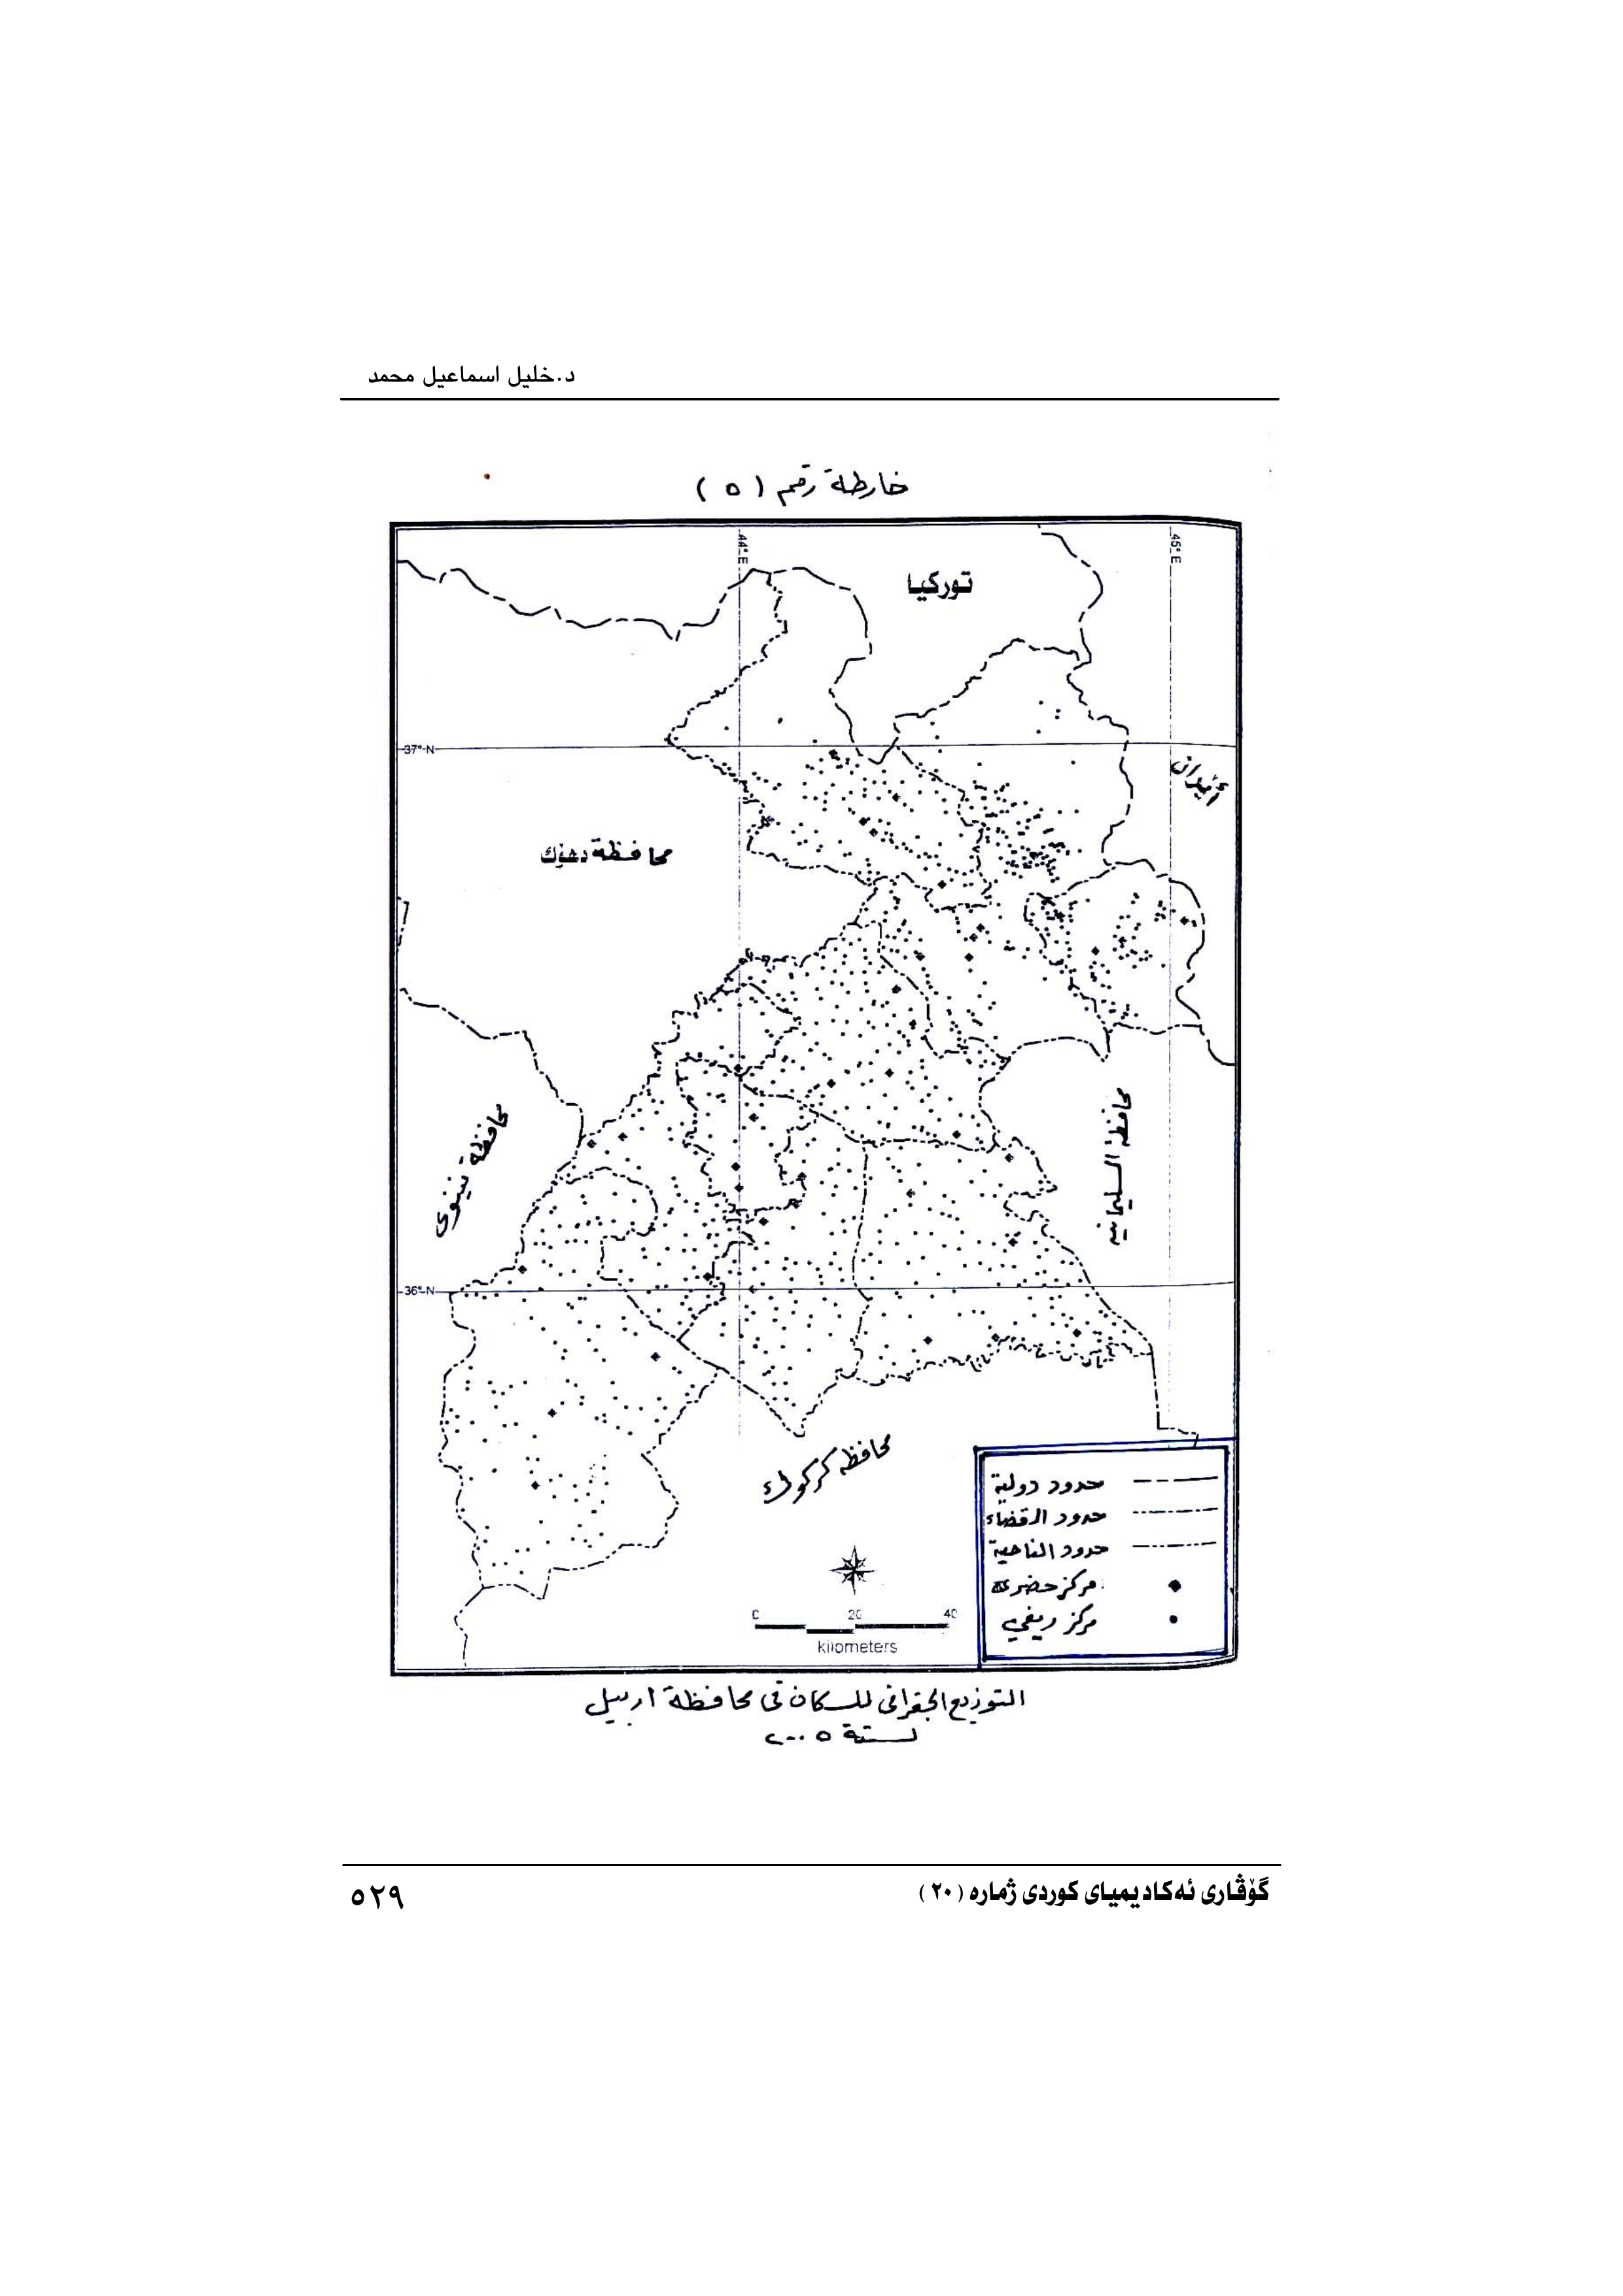 د.خليل اسماعيل محمد
خارطة رقم (٥)
44° E
45° E
توركيا
37° N
أيران
محافظة دهۆك
محافظة نينوى
محافظة السليمانيه
36° N
محافظة كركوك
حدود دولية
حدود القضاء
حدود الناحية
مركز حضري
مركز ريفي
0 20 40
kilometers
التوزيع الجغرافي للسكان في محافظة اربيل
لسنة ٢٠٠٥
گۆڤاری ئەكادیمیای كوردی ژماره (٢٠)
٥٢٩